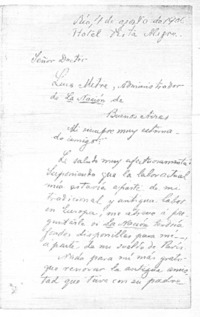 Río, 4 de agosto de
Hotel Vista Alegre.
Señor Doctor
Luis Mitre, Administrador
de La Nación de
Buenos Aires
Mi siempre muy
amigo:
Le saludo muy afectuosamente.
Suponiendo que la labor actual
mia estaría aparte de mi
tradicional, y antigua labor
en Europa, me atrevo a
si La Nación
fondos disponibles para mi,
aparte, de mi sueldo de París.
Nada para mi más
que renovar la antigua amis-
tad que tuve con su padre